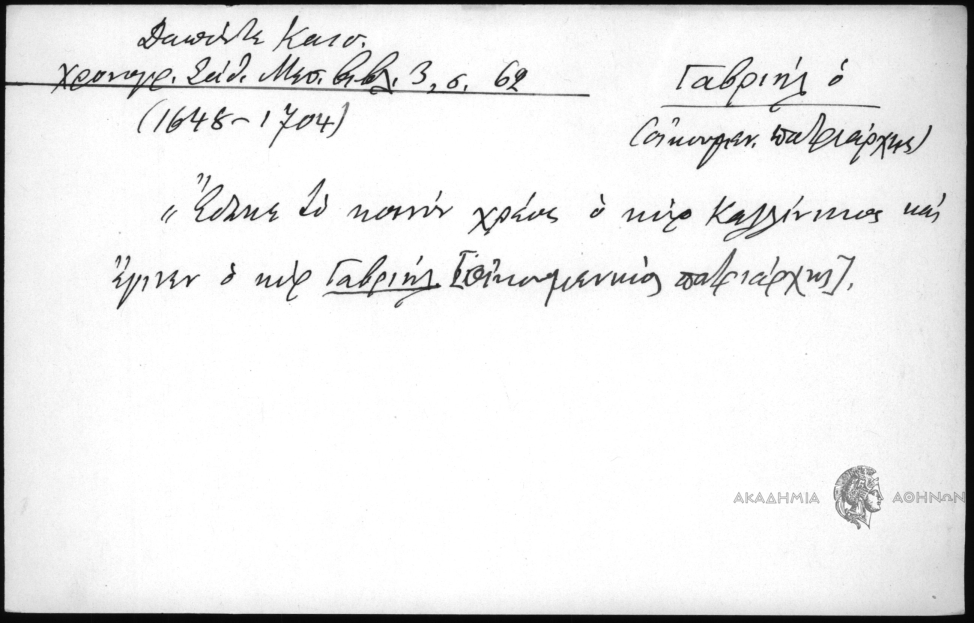 Δαπόντε Κατσ.
Χρονογρ. Σάθ. Μεσ. βιβλ. 3, σ. 62
(1648-1704)
Γαβριήλ ὁ
(οἰκουμεν. πατριάρχης)
"Ἔδωκε τὸ κοινὸν χρέος ὁ κὺρ Καλλίνικος καὶ
ἔγινεν ὁ κὺρ Γαβριήλ [οἰκουμενικὸς πατριάρχης].
ΑΚΑΔΗΜΙΑ ΑΘΗΝΩΝ